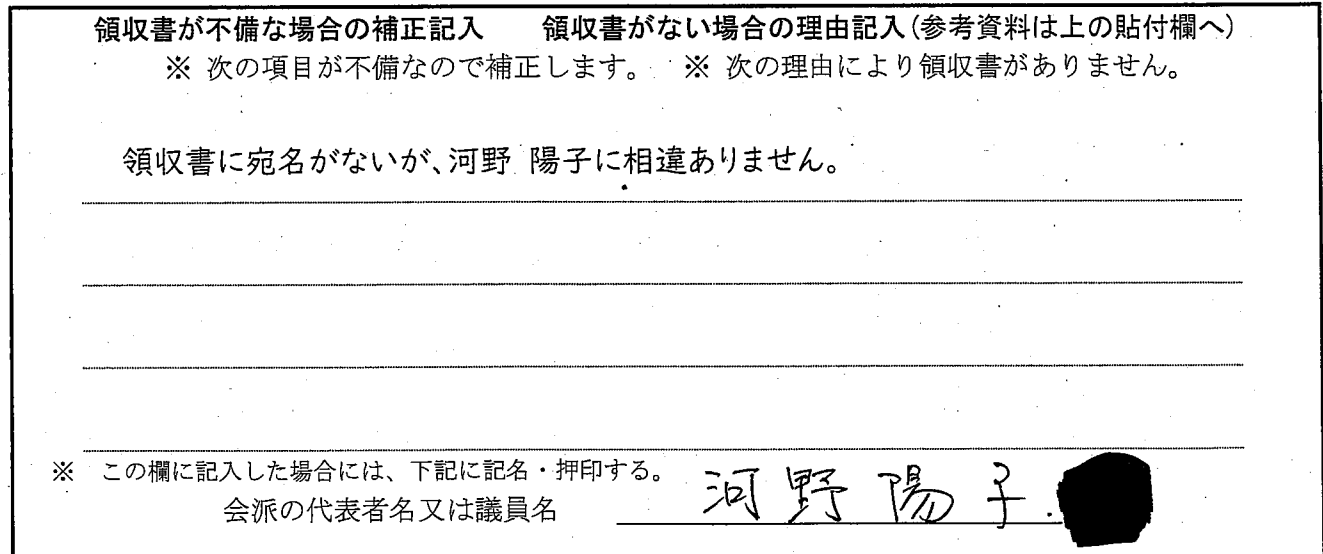 領収書が不備な場合の補正記入　　領収書がない場合の理由記入(参考資料は上の貼付欄へ)
※ 次の項目が不備なので補正します。　※ 次の理由により領収書がありません。
領収書に宛名がないが、河野 陽子に相違ありません。
※　この欄に記入した場合には、下記に記名・押印する。
会派の代表者名又は議員名　河野陽子